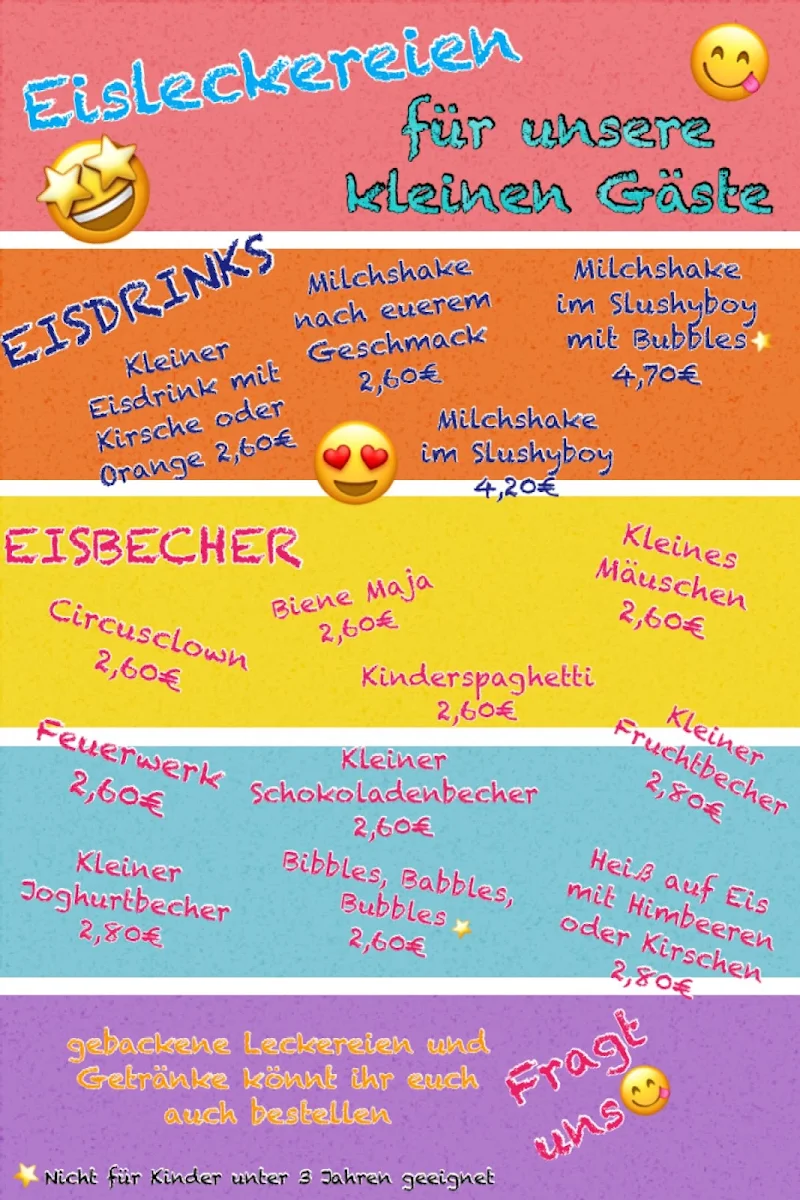 Eisleckereien
für unsere
kleinen Gäste
EISDRINKS
Kleiner
Eisdrink mit
Kirsche oder
Orange 2,60€
Milchshake
nach euerem
Geschmack
2,60€
Milchshake
im Slushyboy
mit Bubbles
4,70€
Milchshake
im Slushyboy
4,20€
EISBECHER
Circusclown
2,60€
Biene Maja
2,60€
Kleines
Mäuschen
2,60€
Kinderspaghetti
2,60€
Feuerwerk
2,60€
Kleiner
Schokoladenbecher
2,60€
Kleiner
Fruchtbecher
2,80€
Kleiner
Joghurtbecher
2,80€
Bibbles, Babbles,
Bubbles
2,60€
Heiß auf Eis
mit Himbeeren
oder Kirschen
2,80€
gebackene Leckereien und
Getränke könnt ihr euch
auch bestellen
Fragt
uns
Nicht für Kinder unter 3 Jahren geeignet